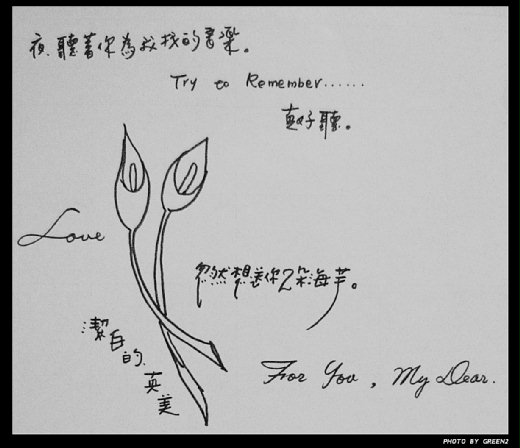 夜,聽著你為我找的音樂。
Try to Remember......
真好聽。
Love
忽然想畫你2朵海芋。
潔白的,
英美
For You, My Dear.
PHOTO BY GREEN2